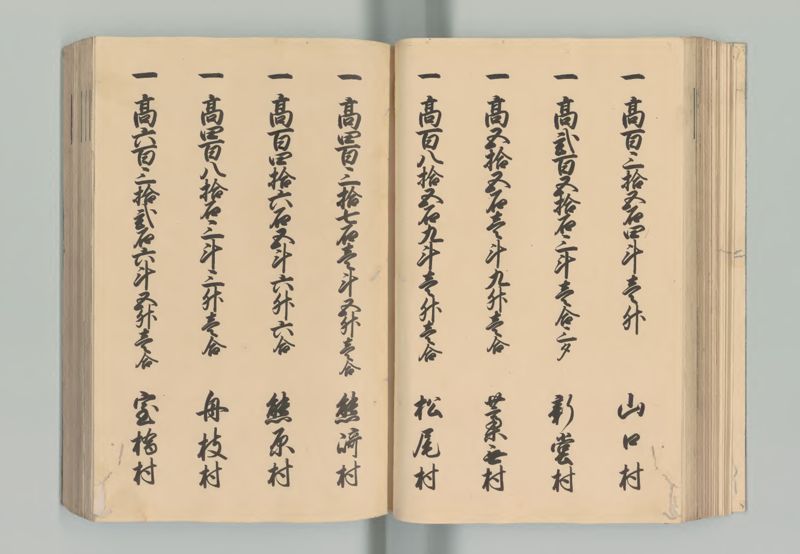 一 高百三拾五石四斗壱升 山口村
一 高弐百五拾石三斗壱合三夕 新堂村
一 高五拾五石壱斗九升壱合
一 高百八拾五石九斗壱升壱合 松尾村
一 高四百三拾七石壱斗五升壱合 熊淵村
一 高百四拾六石五斗六升六合 熊原村
一 高四百八拾石三斗三升壱合 舟枝村
一 高六百三拾弐石六斗五升壱合 室橋村